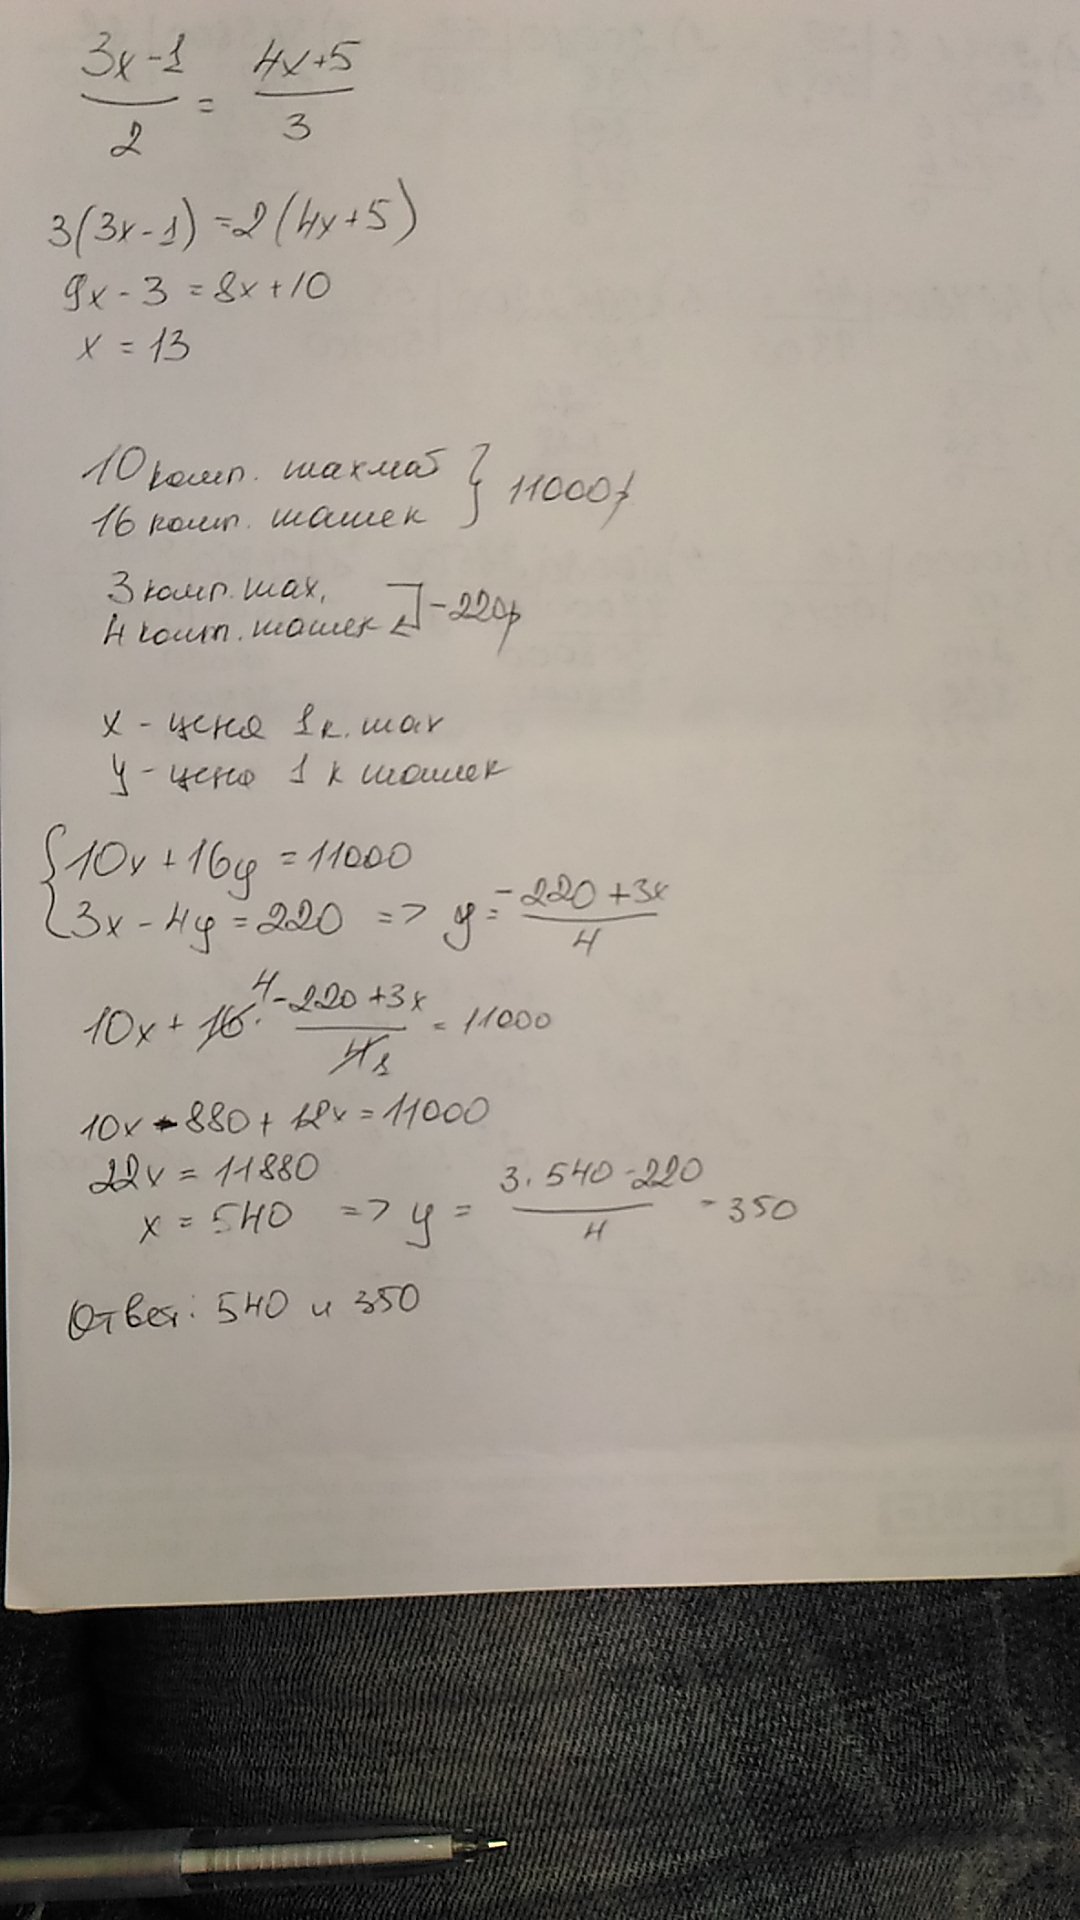 3x-1 / 2 = 4x+5 / 3
3(3x-1)=2(4x+5)
9x-3=8x+10
x=13
10 комп. шахмат } 11000р
16 комп. шашек
3 комп. шах,
4 комп. шашек -220р
x - цена 1 к. шах
y - цена 1 к шашек
{10x+16y=11000
3x-4y=220 => y= -220+3x / 4
10x+16· 4 -220+3x / 4 1 = 11000
10x-880+12x=11000
22x=11880
x=540 => y= 3·540-220 / 4 = 350
Ответ: 540 и 350